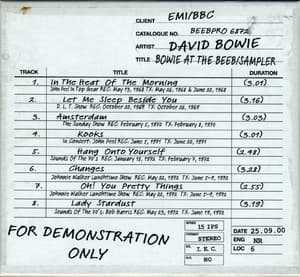 CLIENT EMI/BBC
CATALOGUE NO. BEEBPRO 6872
ARTIST DAVID BOWIE
TITLE BOWIE AT THE BEEB/SAMPLER
TRACK TITLE DURATION
1. In The Heat Of The Morning (3.01)
John Peel in Top Gear REC: May 13, 1968 TX: May 26, 1968 &
2. Let Me Sleep Beside You (3.16)
D.L.T. Show REC: October 20, 1969 TX: October 26, 1969
3. Amsterdam (3.03)
The Sunday Show REC: February 5, 1970 TX: February 8, 1970
4. Kooks (3.01)
In Concert: John Peel REC: June 3, 1971 TX: June 20, 1971
5. Hang Onto Yourself (2.48)
Sounds Of The 70's REC: January 18, 1972 TX: February 7, 1972
6. Changes (3.28)
Johnnie Walker Lunchtime Show REC: May 22, 1972 TX: June 5-9, 1972
7. Oh! You Pretty Things (2.55)
Johnnie Walker Lunchtime Show REC: May 22, 1972 TX: June 5-9, 1972
8. Lady Stardust (3.19)
Sounds Of The 70's: Bob Harris REC: May 23, 1972 TX: June 19, 1972
FOR DEMONSTRATION
ONLY
15 IPS DATE 25.09.00
STEREO ENG NR
I.E.C. LOC 6
NO